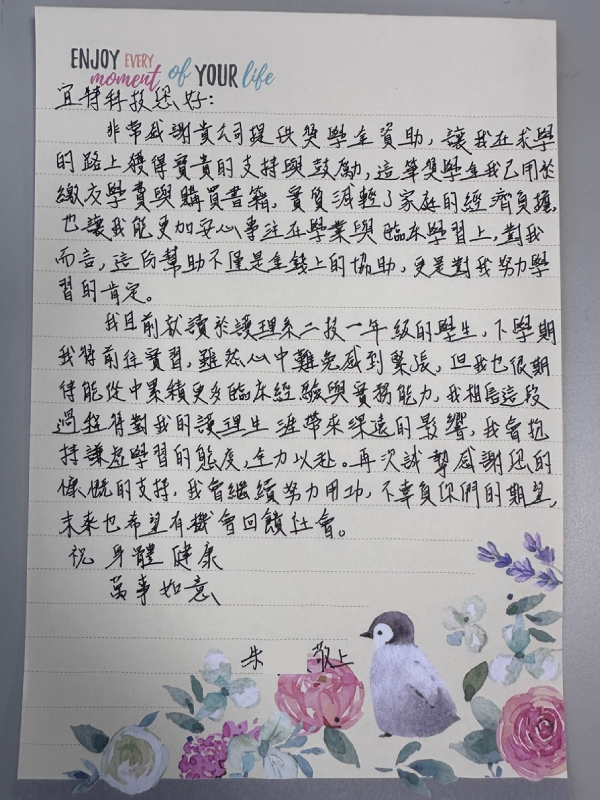 ENJOY EVERY
moment of YOUR life
宜特科技您好：
非常感謝貴公司提供獎學金資助，讓我在求學
的路上獲得寶貴的支持與鼓勵，這筆獎學金我已用於
繳交學費與購買書籍，實質減輕了家庭的經濟負擔，
也讓我能更加安心專注在學業與臨床學習上，對我
而言，這份幫助不僅是金錢上的協助，更是對我努力學
習的肯定。
我目前就讀於護理系二技一年級的學生，下學期
我將前往實習，雖然心中難免感到緊張，但我也很期
待能從中累積更多臨床經驗與實務能力，我相信這段
過程將對我的護理生涯帶來深遠的影響，我會抱
持謙虛學習的態度，全力以赴。再次誠摯感謝您的
慷慨的支持，我會繼續努力用功，不辜負你們的期望，
未來也希望有機會回饋社會。
祝 身體健康
萬事如意
朱 敬上